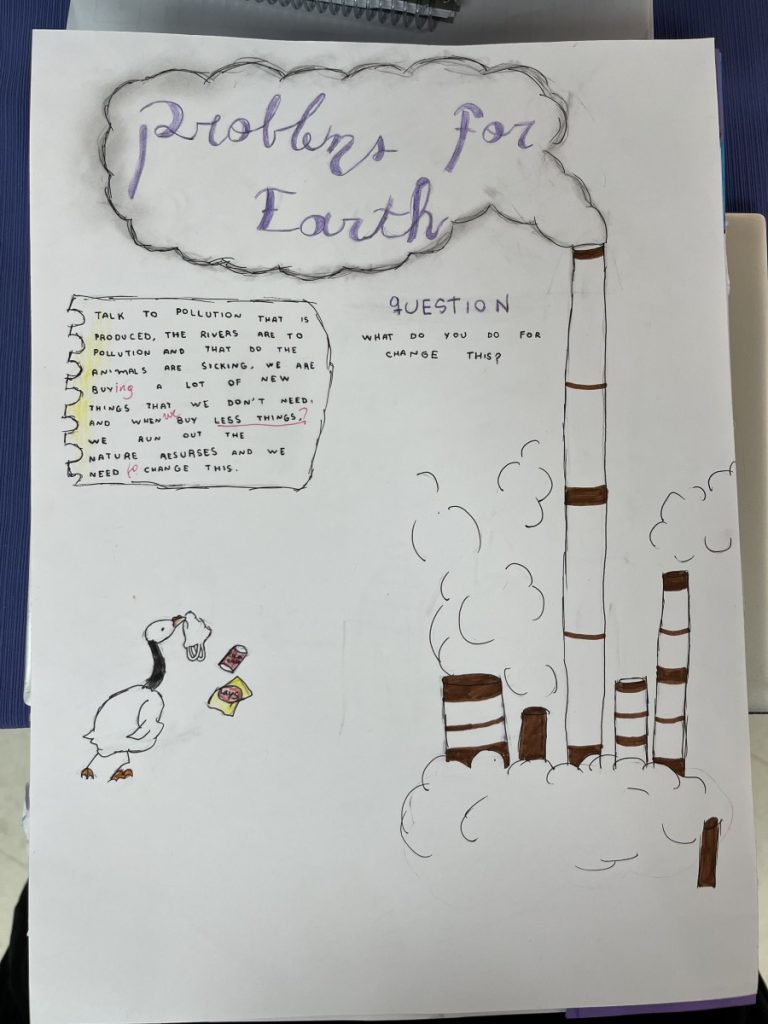 Problems for
Earth
TALK TO POLLUTION THAT IS
PRODUCED, THE RIVERS ARE TO
POLLUTION AND THAT DO THE
ANIMALS ARE SICKING. WE ARE
BUYing A LOT OF NEW
THINGS THAT WE DON'T NEED.
AND WHEN we BUY LESS THINGS.?
WE RUN OUT THE
NATURE RESURSES AND WE
NEED to CHANGE THIS.
QUESTION
WHAT DO YOU DO FOR
CHANGE THIS?
Lays